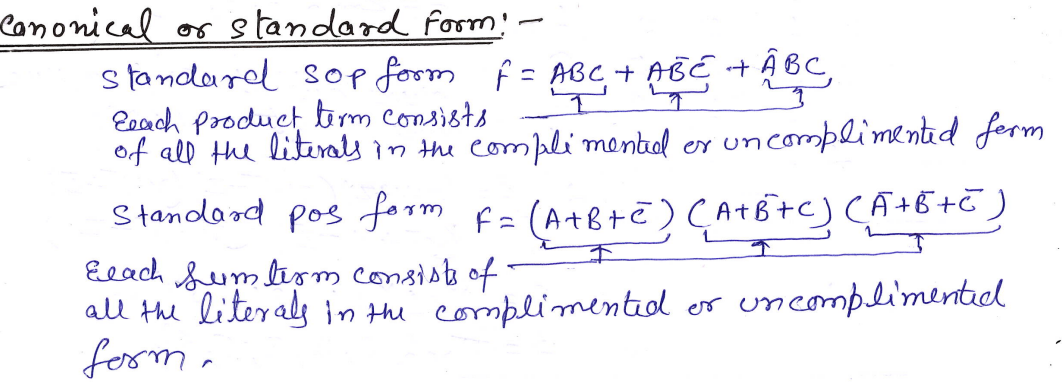 Canonical or standard form:-
standard SOP form f = ABC + AB̄C̄ + ĀBC
Eeach product term consists
of all the literals in the complimented or uncomplimented form
Standard pos form f = (A+B+C̄) (A+B̄+C) (Ā+B̄+C̄)
Eeach sum term consists of
all the literals in the complimented or uncomplimented
form.